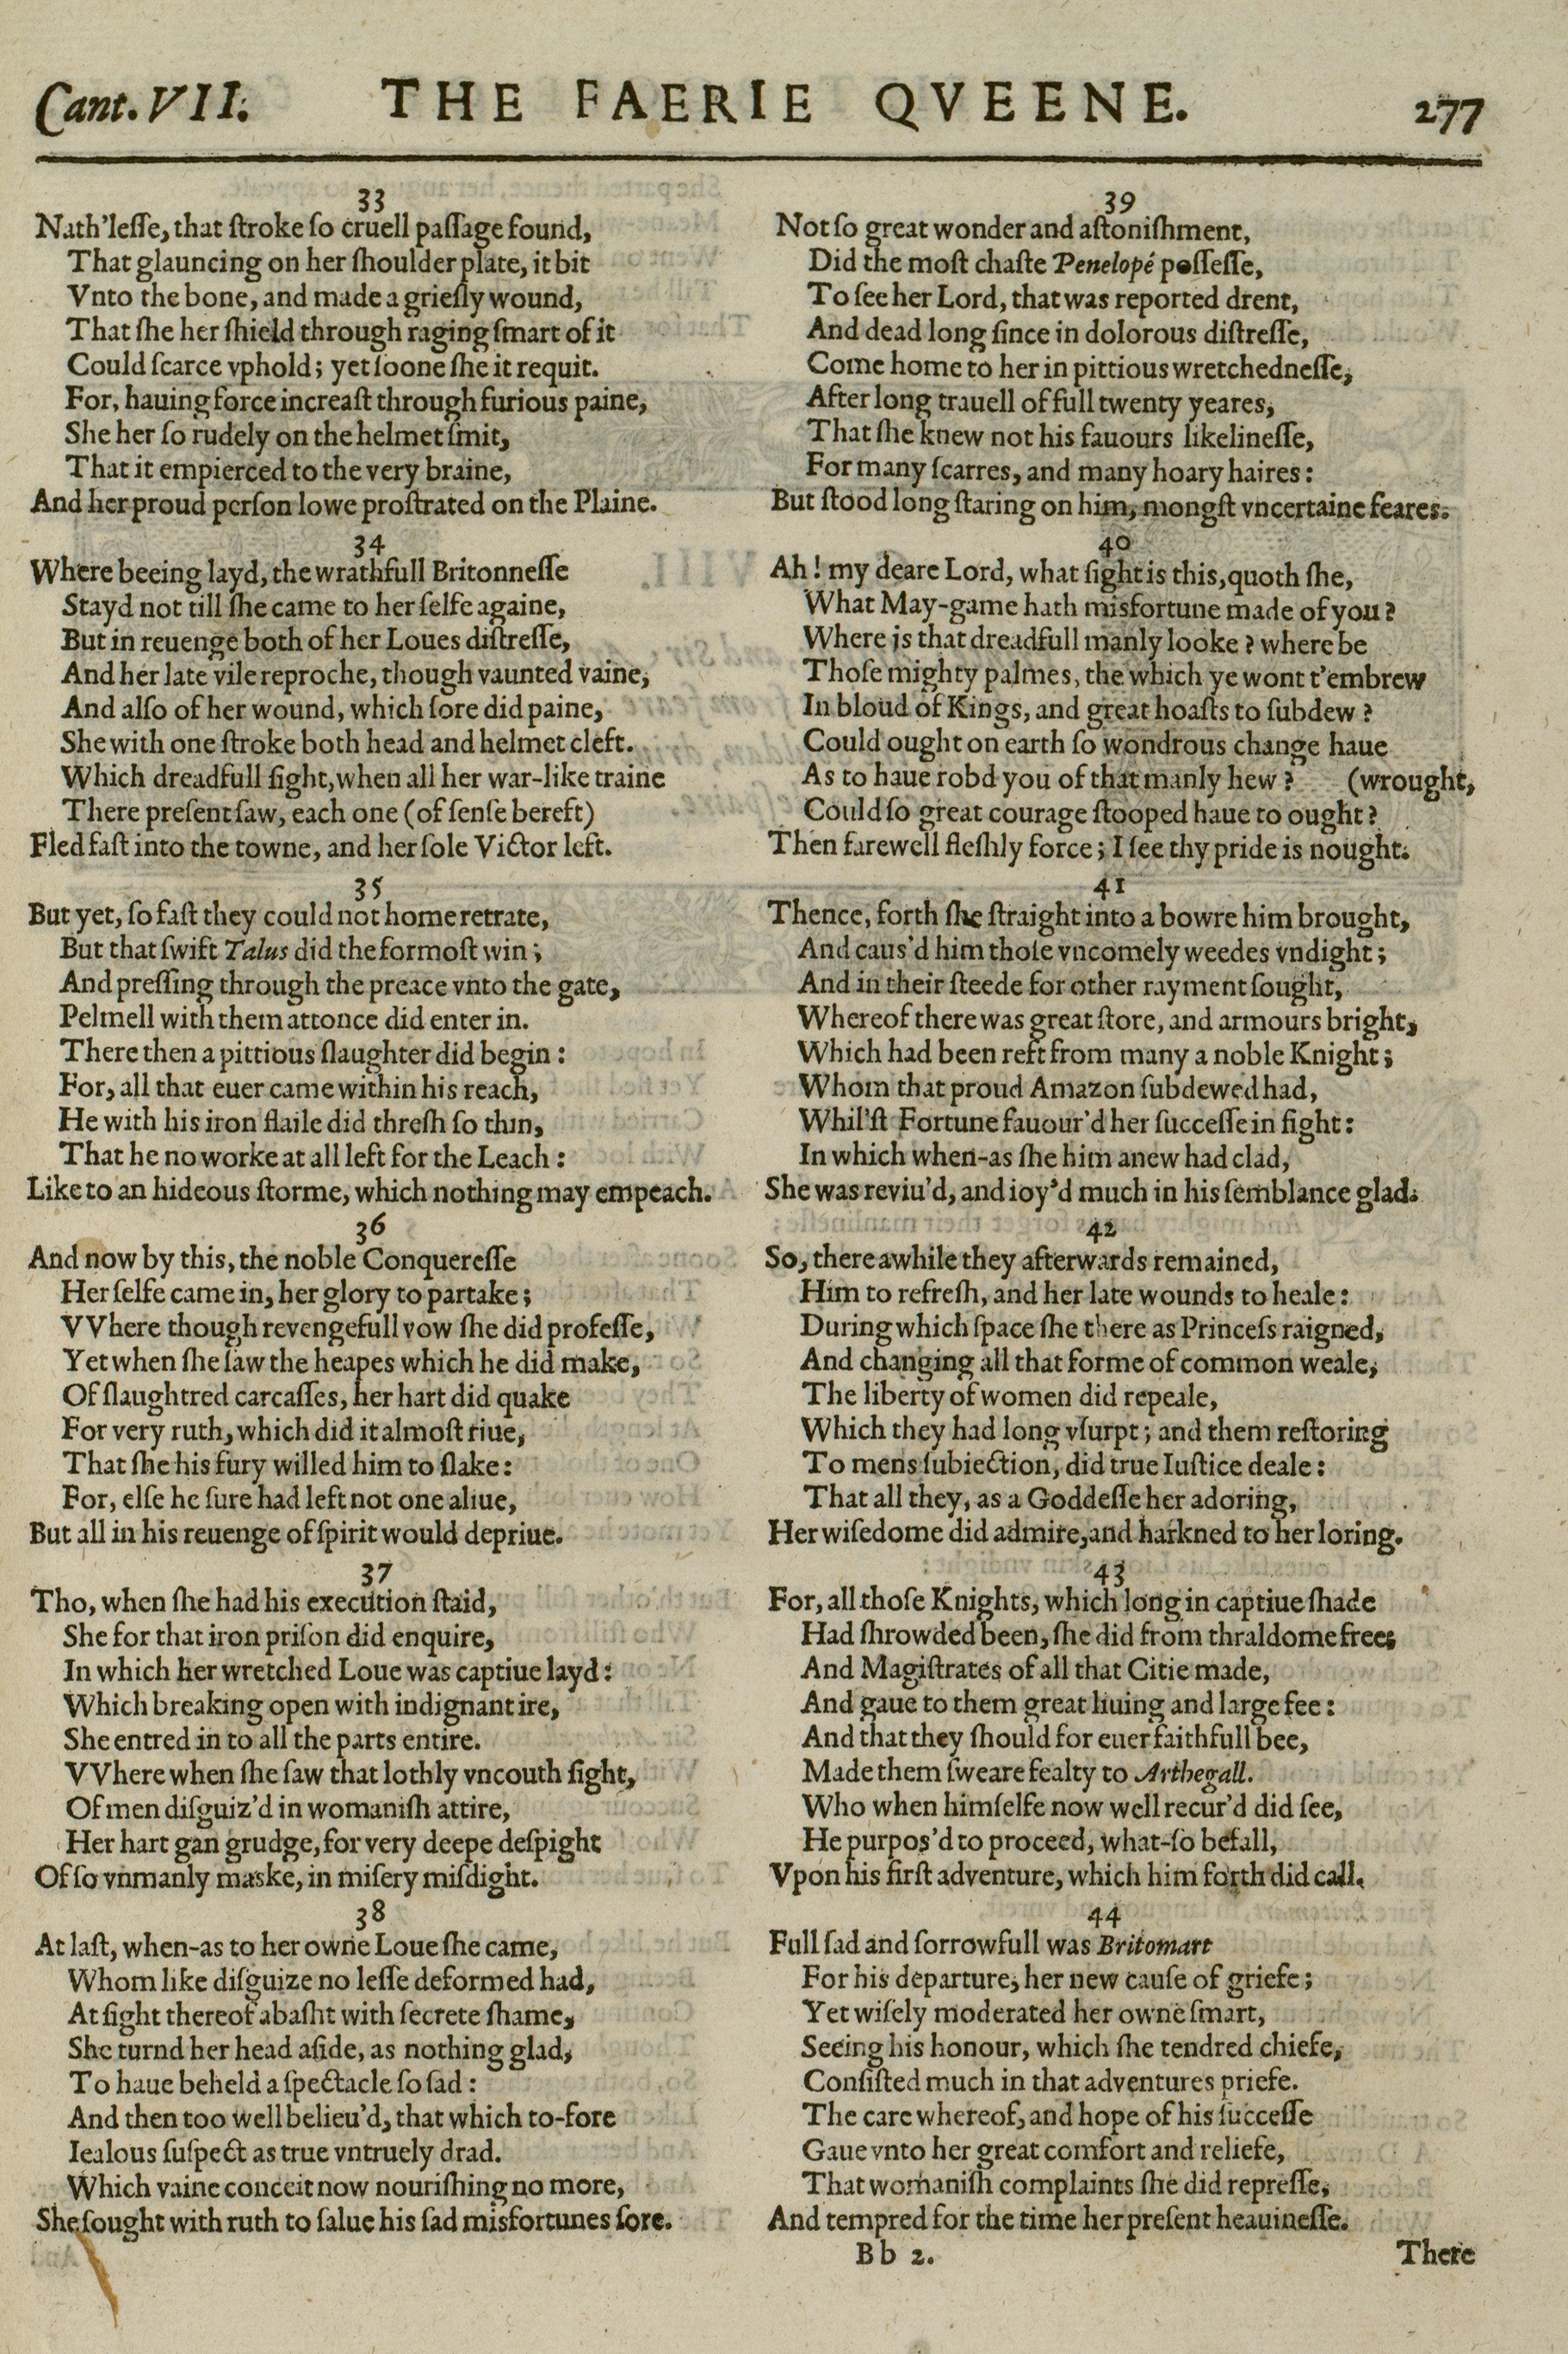 Cant. VII. THE FAERIE QVEENE. 277
33
Nath'leſſe, that ſtroke ſo cruell paſſage found,
That glauncing on her ſhoulder plate, it bit
Vnto the bone, and made a grieſly wound,
That ſhe her ſhield through raging ſmart of it
Could ſcarce vphold; yet ſoone ſhe it requit.
For, hauing force increaſt through furious paine,
She her ſo rudely on the helmet ſmit,
That it empierced to the very braine,
And her proud perſon lowe proſtrated on the Plaine.
34
Where beeing layd, the wrathfull Britonneſſe
Stayd not till ſhe came to her ſelfe againe,
But in reuenge both of her Loues diſtreſſe,
And her late vile reproche, though vaunted vaine,
And alſo of her wound, which ſore did paine,
She with one ſtroke both head and helmet cleft.
Which dreadfull ſight, when all her war-like traine
There preſent ſaw, each one (of ſenſe bereft)
Fled faſt into the towne, and her ſole Victor left.
35
But yet, ſo faſt they could not home retrate,
But that ſwift Talus did the formoſt win;
And preſſing through the preace vnto the gate,
Pelmell with them attonce did enter in.
There then a pittious ſlaughter did begin:
For, all that euer came within his reach,
He with his iron flaile did threſh ſo thin,
That he no worke at all left for the Leach:
Like to an hideous ſtorme, which nothing may empeach.
36
And now by this, the noble Conquereſſe
Her ſelfe came in, her glory to partake;
VVhere though revengefull vow ſhe did profeſſe,
Yet when ſhe ſaw the heapes which he did make,
Of ſlaughtred carcaſſes, her hart did quake
For very ruth, which did it almoſt riue,
That ſhe his fury willed him to ſlake:
For, elſe he ſure had left not one aliue,
But all in his reuenge of ſpirit would depriue.
37
Tho, when ſhe had his execution ſtaid,
She for that iron priſon did enquire,
In which her wretched Loue was captiue layd:
Which breaking open with indignant ire,
She entred in to all the parts entire.
VVhere when ſhe ſaw that lothly vncouth ſight,
Of men diſguiz'd in womaniſh attire,
Her hart gan grudge, for very deepe deſpight
Of ſo vnmanly maske, in miſery miſdight.
38
At laſt, when-as to her owne Loue ſhe came,
Whom like diſguize no leſſe deformed had,
At ſight thereof abaſht with ſecrete ſhame,
She turnd her head aſide, as nothing glad,
To haue beheld a ſpectacle ſo ſad:
And then too well belieu'd, that which to-fore
Iealous ſuſpect as true vntruely drad.
Which vaine conceit now nouriſhing no more,
She ſought with ruth to ſalue his ſad misfortunes ſore.
39
Not ſo great wonder and aſtoniſhment,
Did the moſt chaſte Penelopé poſſeſſe,
To ſee her Lord, that was reported drent,
And dead long ſince in dolorous diſtreſſe,
Come home to her in pittious wretchedneſſe,
After long trauell of full twenty yeares,
That ſhe knew not his fauours likelineſſe,
For many ſcarres, and many hoary haires:
But ſtood long ſtaring on him, mongſt vncertaine feares.
40
Ah! my deare Lord, what ſight is this, quoth ſhe,
What May-game hath misfortune made of you?
Where is that dreadfull manly looke? where be
Thoſe mighty palmes, the which ye wont t'embrew
In bloud of Kings, and great hoaſts to ſubdew?
Could ought on earth ſo wondrous change haue
As to haue robd you of that manly hew? (wrought,
Could ſo great courage ſtooped haue to ought?
Then farewell fleſhly force; I ſee thy pride is nought.
41
Thence, forth ſhe ſtraight into a bowre him brought,
And caus'd him thoſe vncomely weedes vndight;
And in their ſteede for other rayment ſought,
Whereof there was great ſtore, and armours bright,
Which had been reft from many a noble Knight;
Whom that proud Amazon ſubdewed had,
Whil'ſt Fortune fauour'd her ſucceſſe in fight:
In which when-as ſhe him anew had clad,
She was reviu'd, and ioy'd much in his ſemblance glad.
42
So, there awhile they afterwards remained,
Him to refreſh, and her late wounds to heale:
During which ſpace ſhe there as Princeſs raigned,
And changing all that forme of common weale,
The liberty of women did repeale,
Which they had long vſurpt; and them reſtoring
To mens ſubiection, did true Iuſtice deale:
That all they, as a Goddeſſe her adoring,
Her wiſedome did admire, and harkned to her loring.
43
For, all thoſe Knights, which long in captiue ſhade
Had ſhrowded been, ſhe did from thraldome free;
And Magiſtrates of all that Citie made,
And gaue to them great liuing and large fee:
And that they ſhould for euer faithfull bee,
Made them ſweare fealty to Arthegall.
Who when himſelfe now well recur'd did ſee,
He purpos'd to proceed, what-ſo befall,
Vpon his firſt adventure, which him forth did call.
44
Full ſad and ſorrowfull was Britomart
For his departure, her new cauſe of griefe;
Yet wiſely moderated her owne ſmart,
Seeing his honour, which ſhe tendred chiefe,
Conſiſted much in that adventures priefe.
The care whereof, and hope of his ſucceſſe
Gaue vnto her great comfort and reliefe,
That womaniſh complaints ſhe did repreſſe,
And tempred for the time her preſent heauineſſe.
Bb 2. There